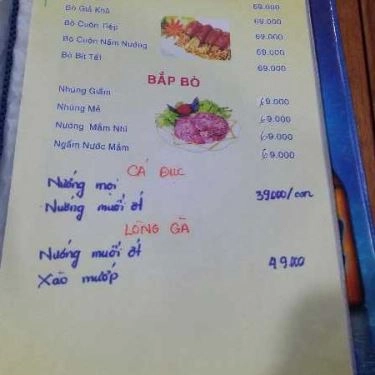 Bò Giả Khả 69.000
Bò Cuộn Tiệp 69.000
Bò Cuộn Nấm Nướng 69.000
Bò Bít Tết 69.000
69.000
BẮP BÒ
Nhúng Giấm 69.000
Nhúng Mẻ 69.000
Nướng Mắm Nhĩ 69.000
Ngấm Nước Mắm 69.000
CÁ ĐỤC
Nướng mọi
Nướng muối ớt 39000/con
LÒNG GÀ
Nướng muối ớt
Xào mướp 49.000